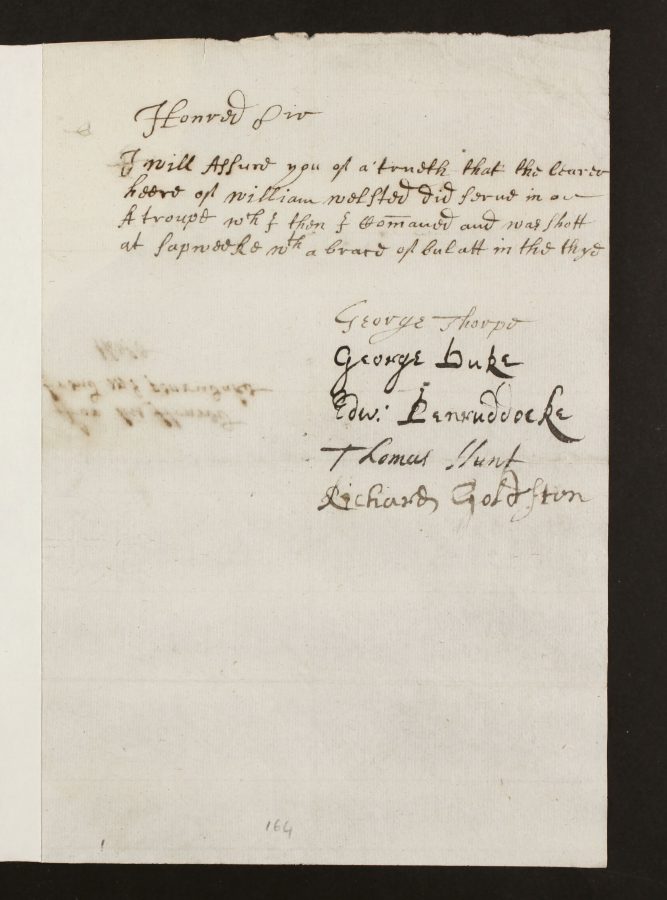 Honred Sir
I will Assure you of a trueth that the bearer
heere of william welsted did serve in
A troupe wch I then I Com̄aned and was shott
at Sapweeke wth a brace of bulatt in the thye
George Thorpe
George Duke
Edw: Penruddocke
Thomas Hunt
Richard Goldston
164